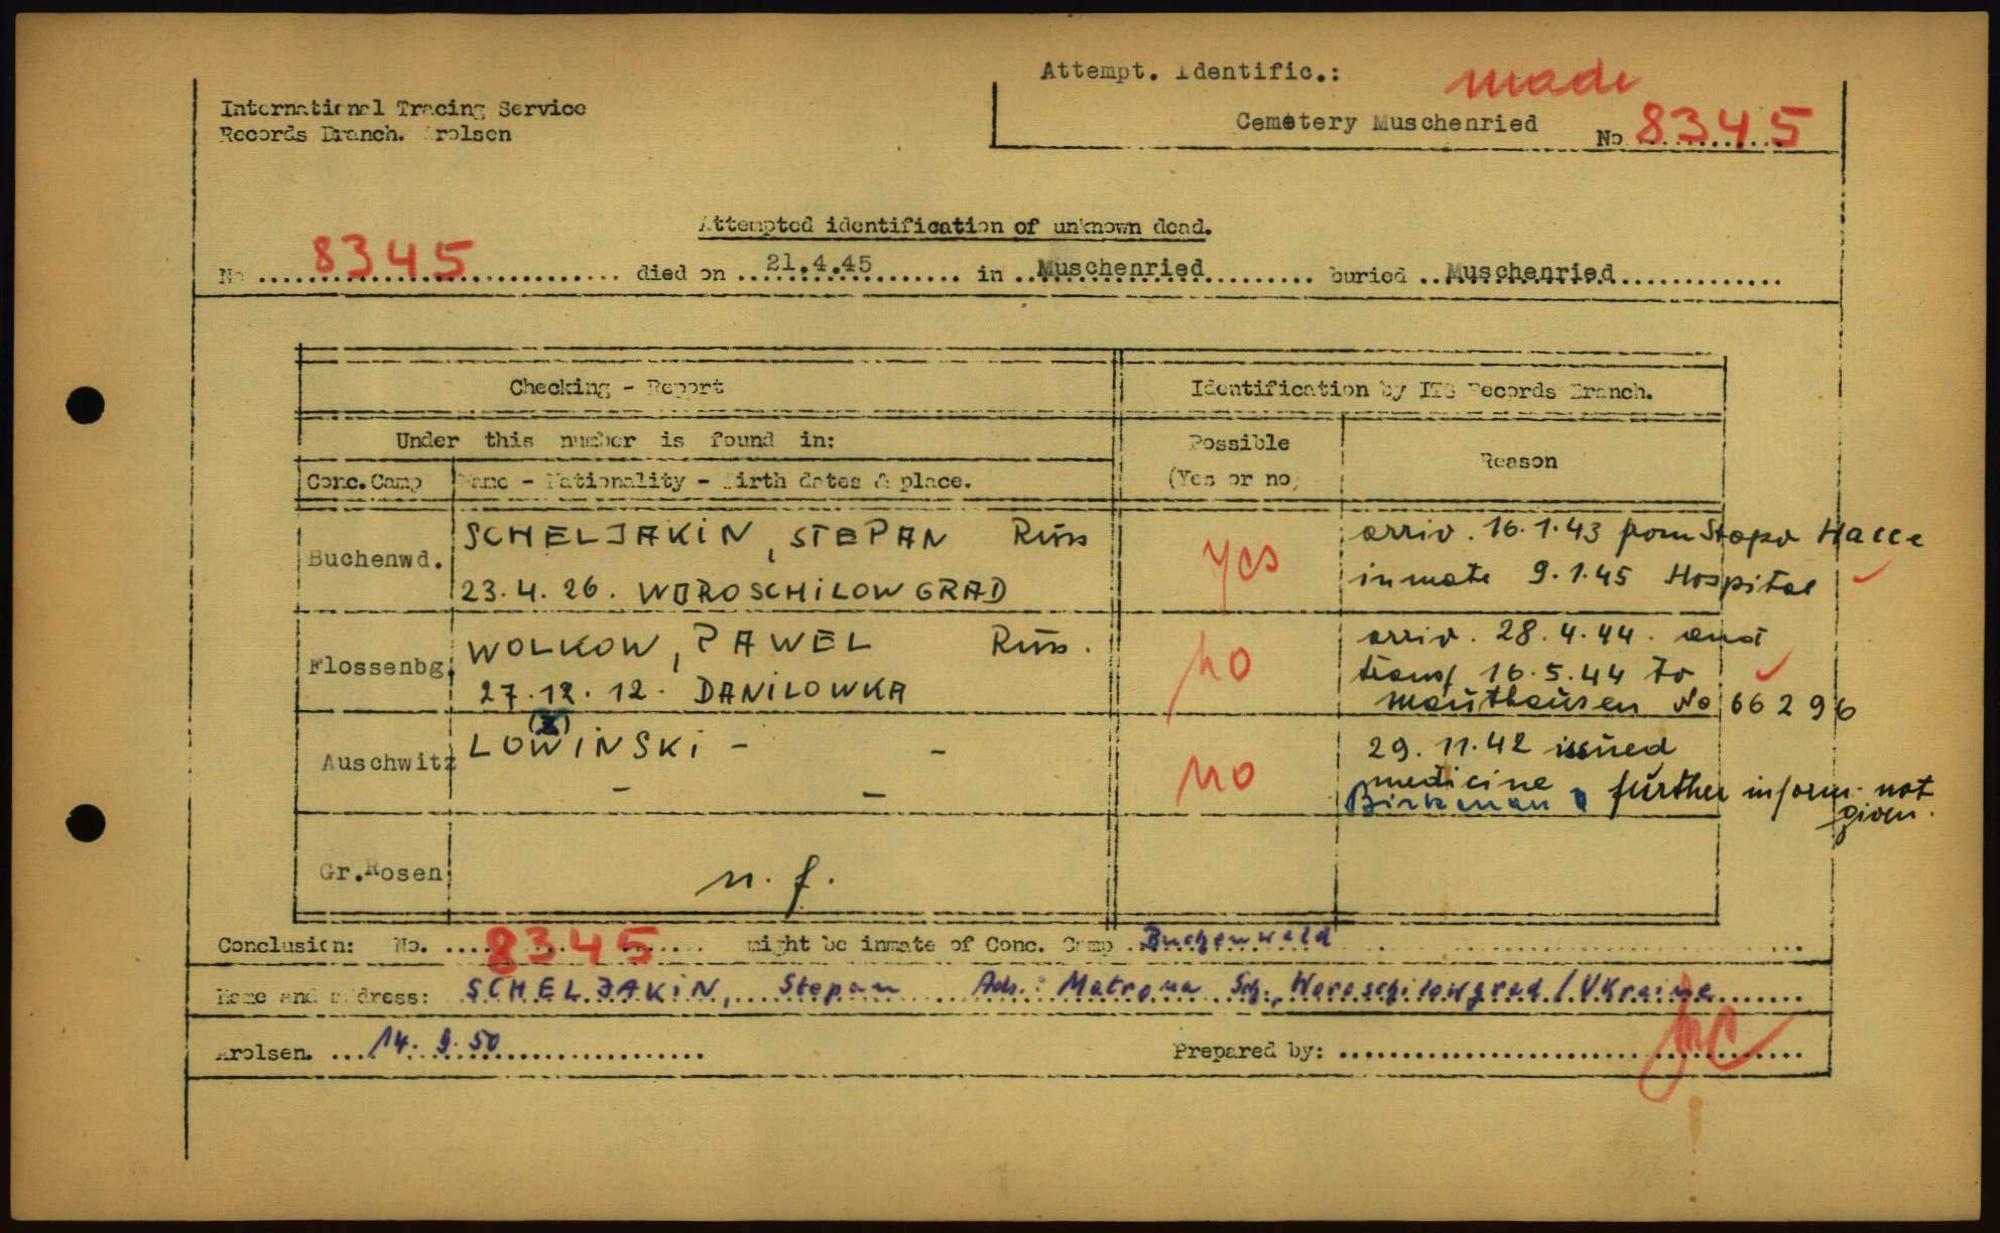 Attempt. Identific.: made
International Tracing Service
Cemetery Muschenried No 8345
Records Branch. Arolsen
Attempted identification of unknown dead.
No 8345 died on 21.4.45 in Muschenried buried Muschenried
Checking - Report
Identification by ITS Records Branch.
Under this number is found in:
Possible
(Yes or no)
Reason
Conc.Camp
Name - Nationality - Birth dates & place.
Buchenwd.
SCHELJAKIN, STEPAN Rüss
23.4.26. WOROSCHILOWGRAD
yes
arriv. 16.1.43 from Stapo Halle
inmate 9.1.45 Hospital
Flossenbg.
WOLKOW, PAWEL Rüss.
27.12.12. DANILOWKA
no
arriv. 28.4.44. and
transf 16.5.44 to
Mauthausen No 66296
Auschwitz
LOWINSKI - -
- -
no
29.11.42 issued
medicine
Birkenau further inform. not
given.
Gr.Rosen
n. f.
Conclusion: No. 8345 might be inmate of Conc. Camp Buchenwald
Name and address: SCHELJAKIN, Stepan Adr.: Matrona Sch., Woroschilowgrad / Ukraine
Arolsen. 14. 9. 50
Prepared by: